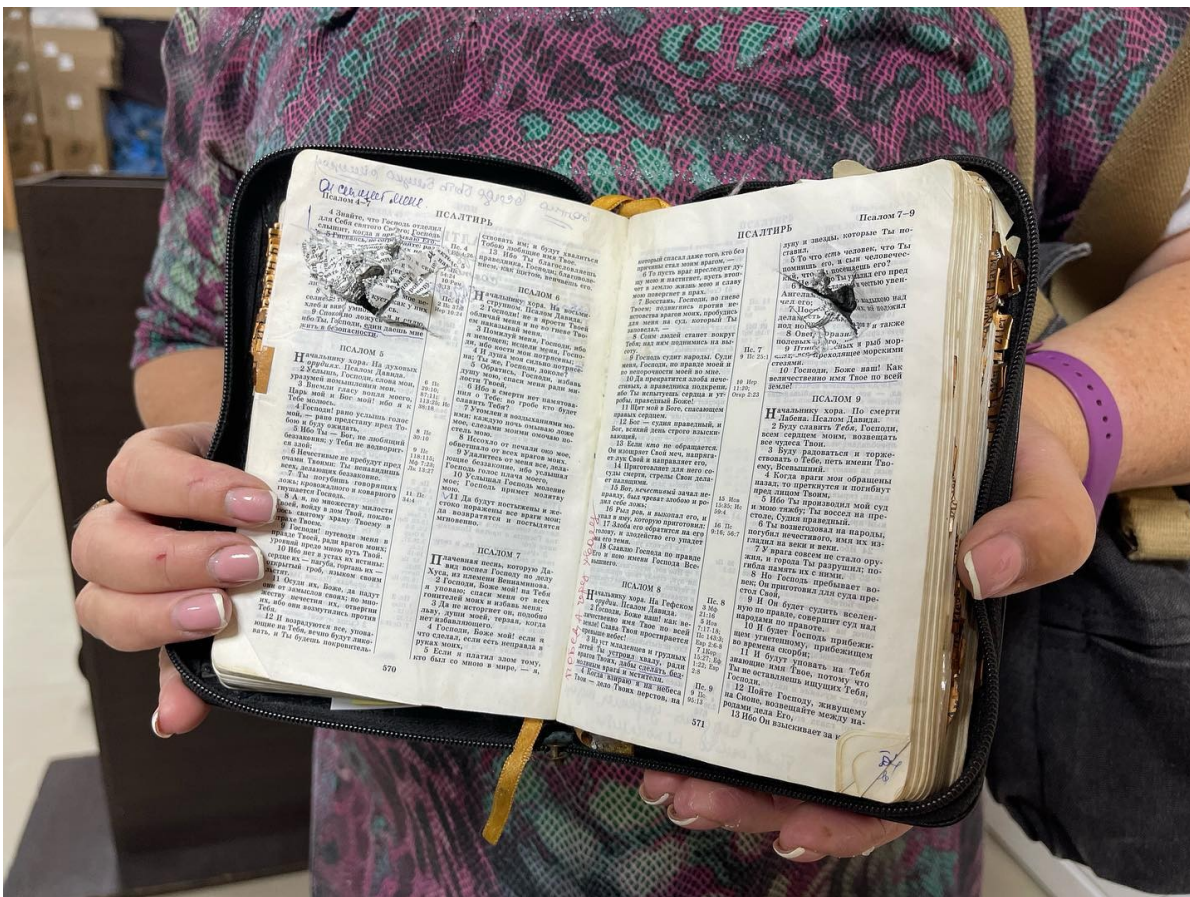 Псалом 4–7
ПСАЛТИРЬ
4 Знайте, что Господь отделил
для Себя святого Своего; Господь
слышит, когда я
9 Спокойно ложусь я
ибо Ты, Господи, един даешь мне
жить в безопасности.
ПСАЛОМ 5
Начальнику хора. На духовых
орудиях. Псалом Давида.
2 Услышь, Господи, слова мои,
уразумей помышления мои.
3 Внемли гласу вопля моего,
Царь мой и Бог мой! ибо я к
Тебе молюсь.
4 Господи! рано услышь голос
мой, — рано предстану пред То-
бою и буду ожидать,
5 Ибо Ты — Бог, не любящий
беззакония; у Тебя не водворит-
ся злой;
6 Нечестивые не пребудут пред
очами Твоими: Ты ненавидишь
всех, делающих беззаконие.
7 Ты погубишь говорящих
ложь; кровожадного и коварного
гнушается Господь.
8 А я, по множеству милости
храму Твоему в
страхе Твоем.
9 Господи! путеводи меня в
правде Твоей, ради врагов моих;
уровняй предо мною путь Твой.
10 Ибо нет в устах их истины:
сердце их — пагуба, гортань их —
открытый гроб, языком своим
льстят.
11 Осуди их, Боже, да падут
они от замыслов своих; по мно-
жеству нечестия их, отвергни
их, ибо они возмутились против
Тебя.
12 И возрадуются все, упова-
ющие на Тебя, вечно будут лико-
вать, и Ты будешь покровитель-
ствовать им; и будут хвалиться
Тобою любящие имя Твое.
13 Ибо Ты благословляешь
праведника, Господи; благоволе-
нием, как щитом, венчаешь его.
ПСАЛОМ 6
Начальнику хора. На восьми-
струнном. Псалом Давида.
2 Господи! не в ярости Твоей
обличай меня и не во гневе Твоем
наказывай меня.
3 Помилуй меня, Господи, ибо я
немощен; исцели меня, Госпо-
ди, ибо кости мои потрясены;
4 И душа моя сильно потрясе-
на; Ты же, Господи, доколе?
5 Обратись, Господи, избавь
душу мою, спаси меня ради ми-
лости Твоей,
6 Ибо в смерти нет памятова-
ния о Тебе: во гробе кто будет
славить Тебя?
7 Утомлен я воздыханиями мо-
ими: каждую ночь омываю ложе
мое, слезами моими омочаю по-
стель мою.
8 Иссохло от печали око мое,
обветшало от всех врагов моих.
9 Удалитесь от меня все, дела-
ющие беззаконие, ибо услышал
Господь голос плача моего,
10 Услышал Господь моление
мое; Господь примет молитву
мою.
11 Да будут постыжены и же-
стоко поражены все враги мои;
да возвратятся и постыдятся
мгновенно.
ПСАЛОМ 7
Плачевная песнь, которую Да-
вид воспел Господу по делу
Хуса, из племени Вениаминова.
2 Господи, Боже мой! на Тебя
я уповаю; спаси меня от всех
гонителей моих и избавь меня;
3 Да не исторгнет он, подобно
льву, души моей, терзая, когда
нет избавляющего.
4 Господи, Боже мой! если я
что сделал, если есть неправда в
руках моих,
5 Если я платил злом тому,
кто был со мною в мире, — я,
570
Псалом 7–9
ПСАЛТИРЬ
который спасал даже того, кто без
причины стал моим врагом, —
6 То пусть враг преследует ду-
шу мою и настигнет, пусть втоп-
чет в землю жизнь мою и славу
мою повергнет в прах.
7 Восстань, Господи, во гневе
Твоем; подвигнись против не-
истовства врагов моих, пробудись
для меня на суд, который Ты
заповедал, —
8 Сонм людей станет вокруг
Тебя; над ним поднимись на вы-
соту.
9 Господь судит народы. Суди
меня, Господи, по правде моей и
по непорочности моей во мне.
10 Да прекратится злоба нече-
стивых, а праведника подкрепи,
ибо Ты испытуешь сердца и ут-
робы, праведный Боже!
11 Щит мой в Боге, спасающем
правых сердцем.
12 Бог — судия праведный, и
Бог, всякий день строго взыски-
вающий,
13 Если кто не обращается.
Он изощряет Свой меч, напряга-
ет лук Свой и направляет его,
14 Приготовляет для него со-
суды смерти, стрелы Свои дела-
ет палящими.
15 Вот, нечестивый зачал не-
правду, был чреват злобою и ро-
дил себе ложь;
16 Рыл ров, и выкопал его, и
упал в яму, которую приготовил:
17 Злоба его обратится на его
голову, и злодейство его упадет
на его темя.
18 Славлю Господа по правде
Его и пою имени Господа Все-
вышнего.
ПСАЛОМ 8
Начальнику хора. На Гефском
орудии. Псалом Давида.
2 Господи, Боже наш! как ве-
личественно имя Твое по всей
земле! Слава Твоя простирается
превыше небес!
3 Из уст младенцев и грудных
детей Ты устроил хвалу, ради
врагов Твоих, дабы сделать без-
молвным врага и мстителя.
4 Когда взираю я на небеса
Твои — дело Твоих перстов, на
луну и звезды, которые Ты по-
ставил,
5 То что есть человек, что Ты
помнишь его, и сын человечес-
кий, что Ты посещаешь его?
8 Овец
полевых
рыб мор-
преходящее морскими
стезями.
10 Господи, Боже наш! Как
величественно имя Твое по всей
земле!
ПСАЛОМ 9
Начальнику хора. По смерти
Лабена. Псалом Давида.
2 Буду славить Тебя, Господи,
всем сердцем моим, возвещать
все чудеса Твои.
3 Буду радоваться и торже-
ствовать о Тебе, петь имени Тво-
ему, Всевышний.
4 Когда враги мои обращены
назад, то преткнутся и погибнут
пред лицом Твоим,
5 Ибо Ты производил мой суд
и мою тяжбу; Ты воссел на пре-
столе, Судия праведный.
6 Ты вознегодовал на народы,
погубил нечестивого, имя их из-
гладил на веки и веки.
7 У врага совсем не стало ору-
жия, и города Ты разрушил; по-
гибла память их с ними.
8 Но Господь пребывает во-
век; Он приготовил для суда пре-
стол Свой,
9 И Он будет судить вселен-
ную по правде, совершит суд над
народами по правоте.
10 И будет Господь прибежи-
щем угнетенному, прибежищем
во времена скорби;
11 И будут уповать на Тебя
знающие имя Твое, потому что
Ты не оставляешь ищущих Тебя,
Господи.
12 Пойте Господу, живущему
на Сионе, возвещайте между на-
родами дела Его,
13 Ибо Он взыскивает за
571